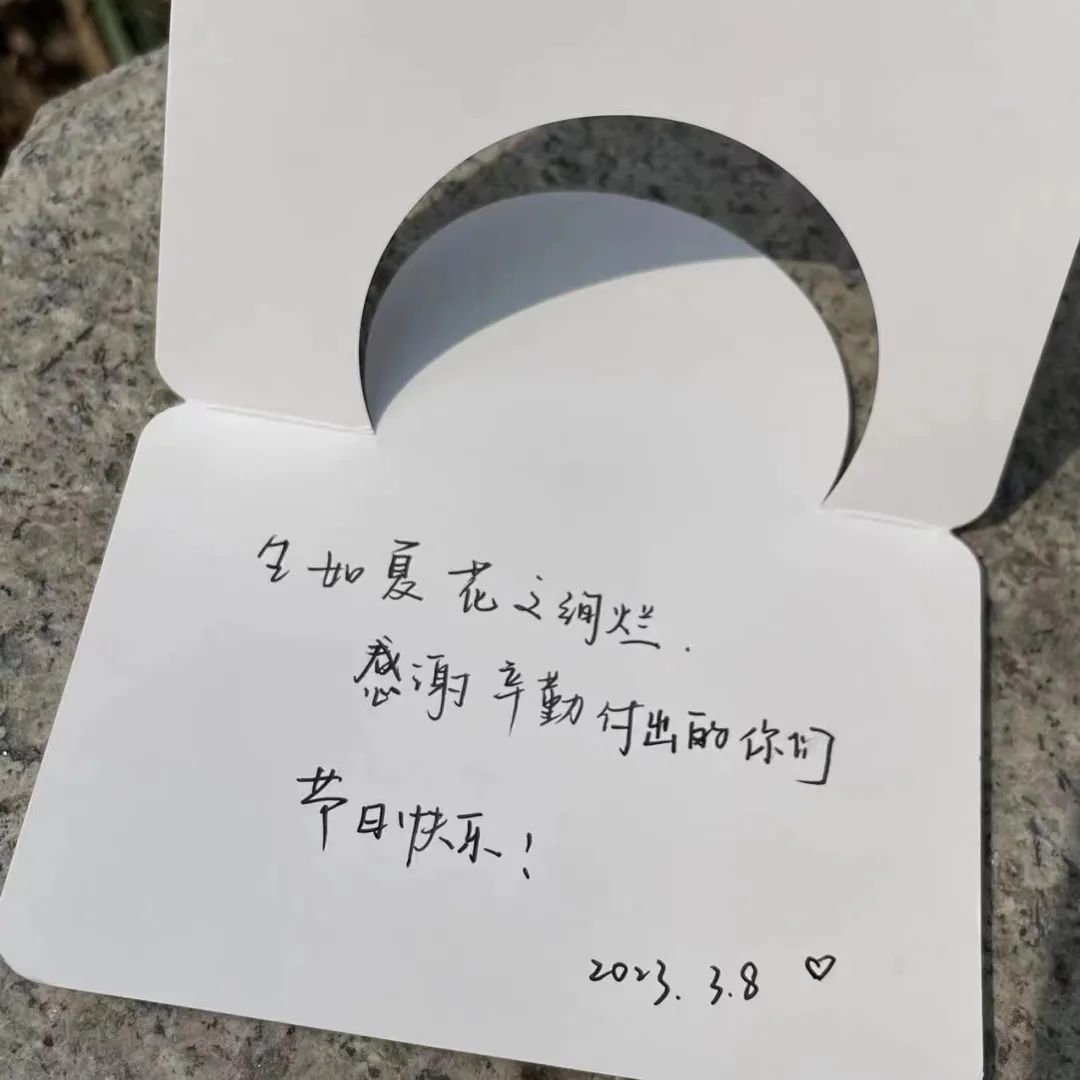 生如夏花之绚烂.
感谢辛勤付出的你们
节日快乐!
2023.3.8 ♡